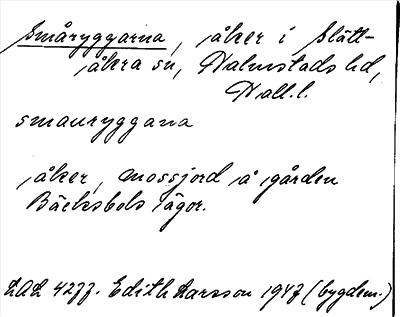 Småryggarna, åker i Slätt-
åkra sn, Halmstads hd,
Hall. l.
smauryggana
åker, mossjord å gården
Bäcksbols ägor.
LAL 4277. Edith Larsson 1947 (bygdem.)